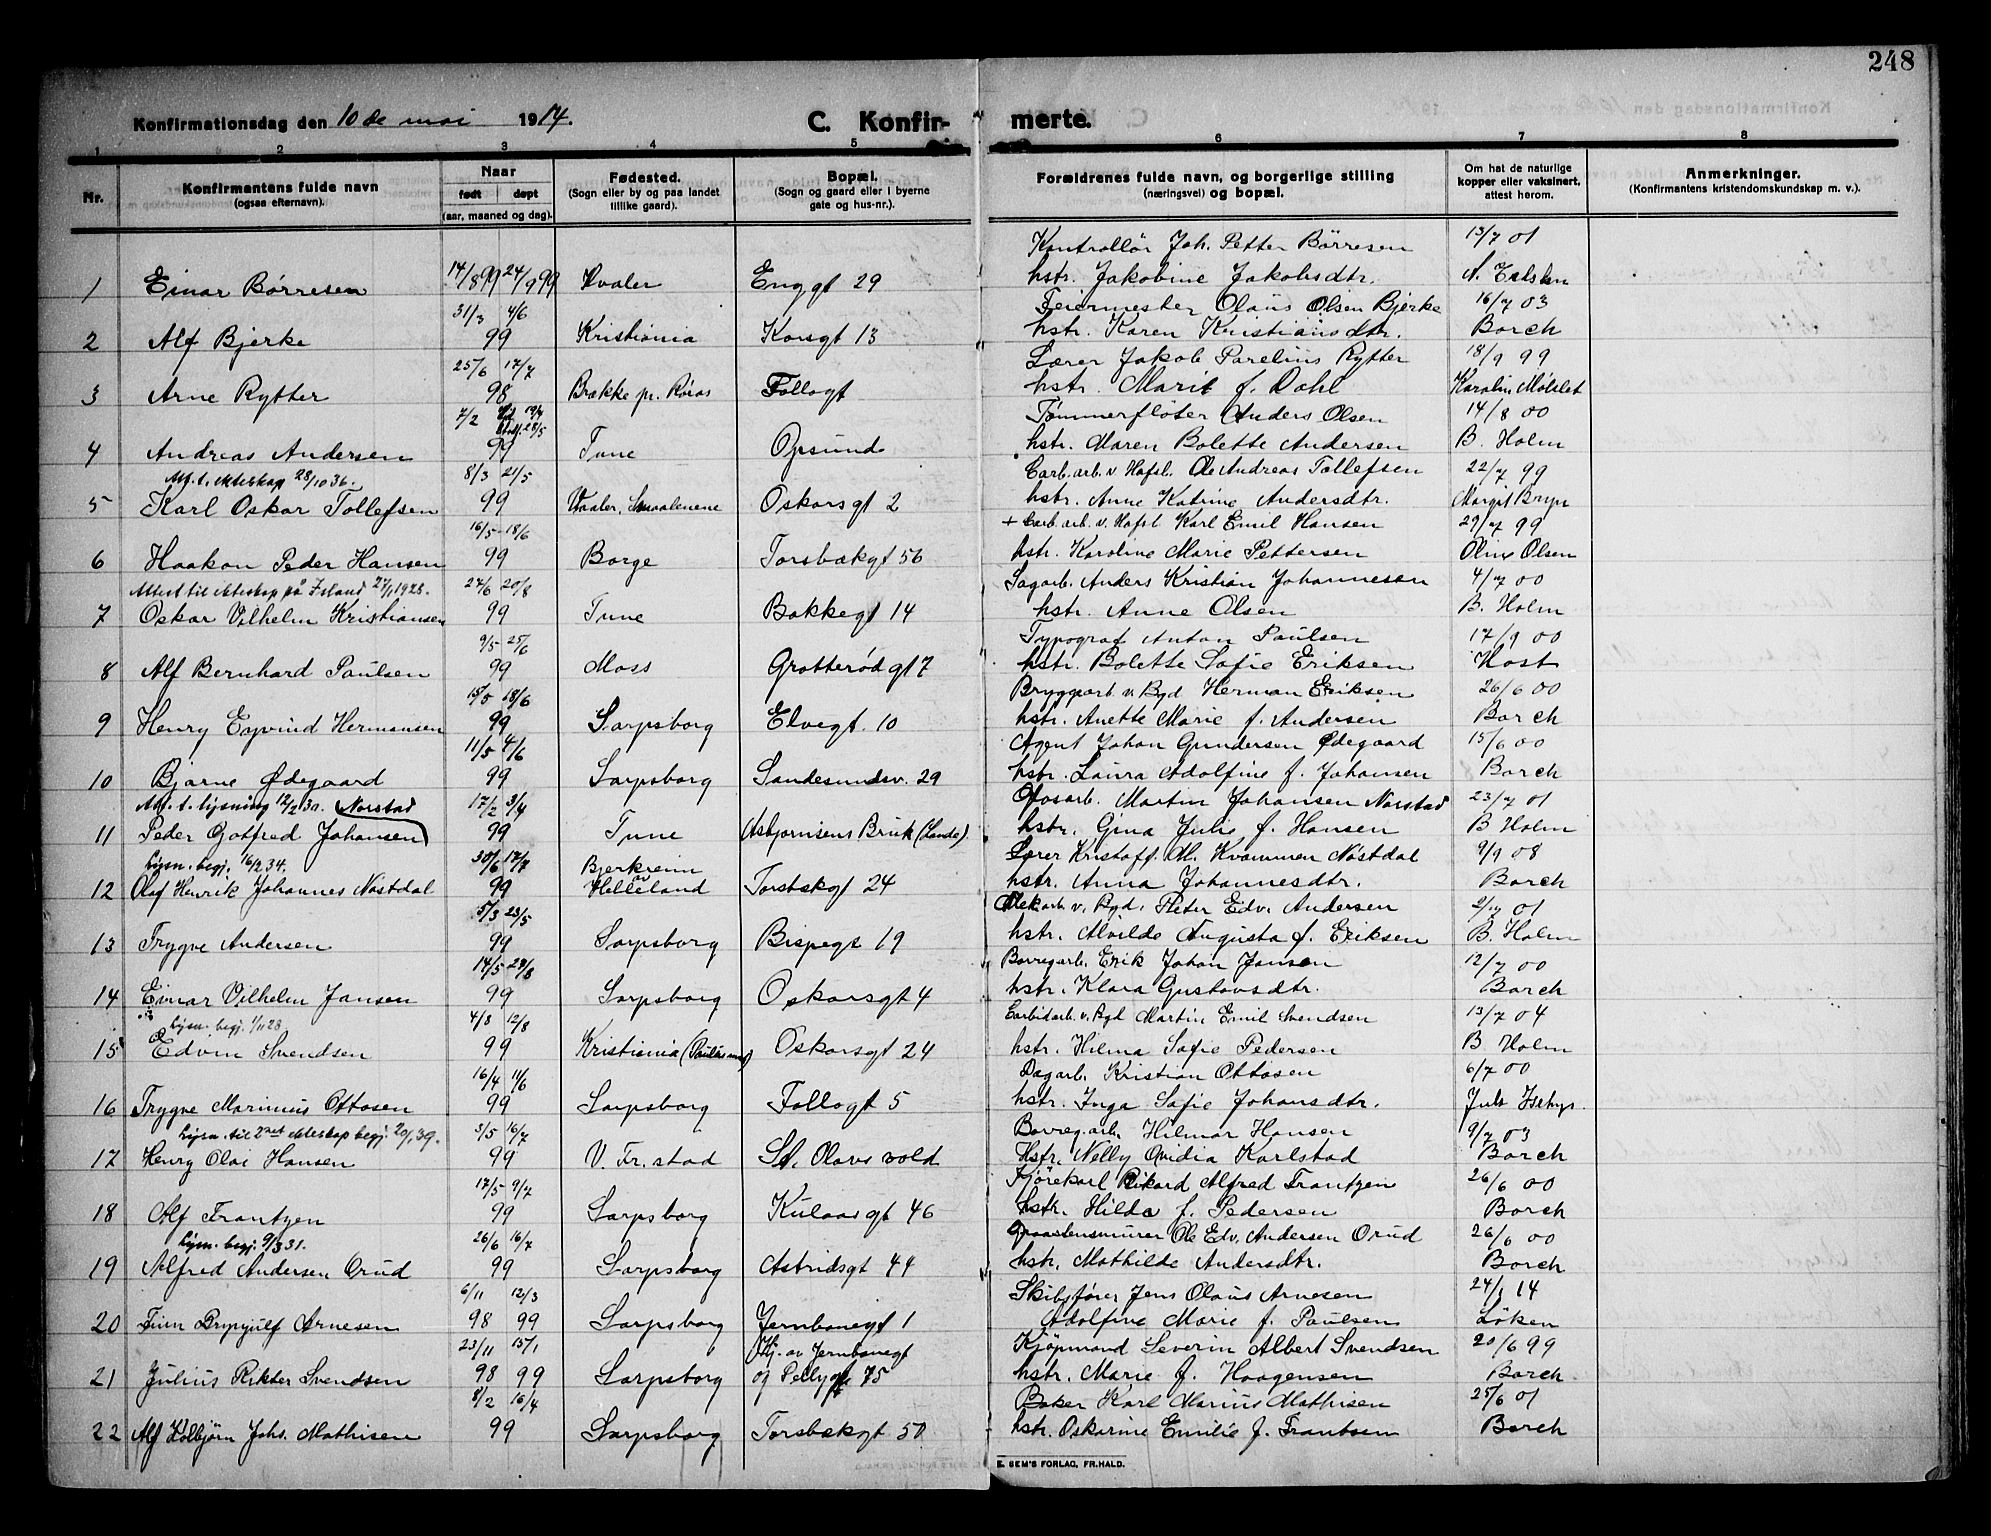 248
Konfirmationsdag den 10de mai 1914. C. Konfir- merte.
1 2 3 4 5 6 7 8
Nr. Konfirmantens fulde navn (ogsaa efternavn). Naar født døpt (aar, maaned og dag). Fødested. (Sogn eller by og paa landet tillike gaard). Bopæl. (Sogn og gaard eller i byerne gate og hus-nr.). Forældrenes fulde navn, og borgerlige stilling (næringsvei) og bopæl. Om hat de naturlige kopper eller vaksinert, attest herom. Anmerkninger. (Konfirmantens kristendomskundskap m. v.).
Kontrollör Joh. Petter Börresen 13/7 01
1 Einar Børresen 14/8 99 24/9 99 Hvaler Enggt 29 hstr. Jakobine Jakobsdtr.
31/3 4/6 Feiermester Olaus Olsen Bjerke 16/7 03
2 Alf Bjerke 99 Kristiania Korsgt 13 hstr. Karen Kristiansdtr. Borch
25/6 17/7 Lærer Jakob Parelius Rytter 18/9 99
3 Arne Rytter 98 Brække pr. Røros Follogt hstr. Marit f. Dahl Karolin Mølslet
7/2 Tømmerfløter Anders Olsen 14/8 00
4 Andreas Andersen 99 Tune Opsund hstr. Maren Bolette Andersen B. Holm
Att. t. ekteskap 28/10 36. 8/3 21/5 Carb.arb. v. Hafsl. Ole Andreas Tollefsen 22/7 99
5 Karl Oskar Tollefsen 99 Vaaler, Smaalenene Oskarsgt 2 hstr. Anne Katrine Andersdtr. Margit Bryn
16/5 - 18/6 + Carb.arb. v. Hafsl Karl Emil Hansen 29/7 99
6 Haakon Peder Hansen 99 Borge Torsbækgt 56 hstr. Karoline Marie Pettersen Oline Olsen
Attest til ekteskap på Island 27/1 1928. 24/6 20/8 Sagarb. Anders Kristian Johannesen 4/7 00
7 Oskar Vilhelm Kristiansen 99 Tune Bakkegt 14 hstr. Anne Olsen B. Holm
9/5 25/6 Typograf Anton Paulsen 17/9 00
8 Alf Bernhard Paulsen 99 Moss Grotterødgt 7 hstr. Bolette Sofie Eriksen Host
15/5 18/6 Bryggarb. v. Bgd Herman Eriksen 26/6 00
9 Henry Eyvind Hermansen 99 Sarpsborg Elvegt. 10 hstr. Anette Marie f. Andersen Borch
11/5 4/6 Agent Johan Gundersen Ødegaard 15/6 00
10 Bjarne Ødegaard 99 Sarpsborg Sandesundsv. 29 hstr. Laura Adolfine f. Johansen Borch
Att. t. lysning 12/2 30. Norstad 17/2 3/4 Ofosarb. Martin Johansen Norstad 23/7 01
11 Peder Gotfred Johansen 99 Tune Asbjørnsens Bruk (Lande) hstr. Gina Julie f. Hansen B Holm
Lysn. begj. 16/2 34. 30/6 17/7 Bjerkreim Lærer Kristoff. M. Kvammen Nöstdal 9/9 08
12 Olaf Henrik Johannes Nöstdal 99 Helleland Torsbækgt 24 hstr. Anna Johannesdtr. Borch
5/3 23/5 Elekarb. v. Bgd. Peter Edv. Andersen 2/7 01
13 Trygve Andersen 99 Sarpsborg Bispegt 19 hstr. Alvilde Augusta f. Eriksen B. Holm
14/5 Borregarb. Erik Johan Jansen 12/7 00
14 Einar Vilhelm Jansen 99 Sarpsborg Oskarsgt 4 hstr. Klara Gustavsdtr. Borch
Lysn. begj. 1/11 28 4/8 12/8 Carbidarb. v. Bgd Martin Emil Svendsen 13/7 04
15 Edvin Svendsen 99 Kristiania (Paulus men) Oskarsgt 24 hstr. Hilma Sofie Pedersen B. Holm
16/4 11/6 Dagarb. Kristian Ottosen 6/7 00
16 Trygve Marinius Ottosen 99 Sarpsborg Follogt 5 hstr. Inga Sofie Johansdtr.
Lysn. til 2net ekteskap begj. 20/1 39. 3/5 16/7 Borregarb. Hilmar Hansen 9/7 03
17 Henry Olai Hansen 99 V. Fr.stad St. Olavs vold Hstr. Nelly Ovidia Karlstad Borch
17/5 9/7 Kjörekarl Rikard Alfred Frantzen 26/6 00
18 Alf Frantzen 99 Sarpsborg Kulaasgt 46 hstr. Hilda f. Pedersen Borch
Lysn. begj. 9/3 31. 26/6 16/7 Graastensmurer Ole Edv. Andersen Orud 26/6 00
19 Alfred Andersen Orud 99 Sarpsborg Astridsgt 44 hstr. Mathilde Andersdtr. Borch
6/11 12/3 Skibsfører Jens Olaus Arnesen 24/1 14
20 Finn Brynjulf Arnesen 98 99 Sarpsborg Jernbanegt 1 Adolfine Marie f. Paulsen Löken
23/11 15/1 Hj. av Jernbanegt Kjöpmand Severin Albert Svendsen 20/6 99
21 Julius Rikter Svendsen 98 99 Sarpsborg og Pellygt 75 hstr. Marie f. Haagensen Borch
8/2 16/4 Baker Karl Marius Mathisen 25/6 01
22 Alf Kolbjörn Johs. Mathisen 99 Sarpsborg Torsbækgt 50 hstr. Oskarine Emilie f. Frantsen Borch
E. SEM'S FORLAG, FR.HALD.